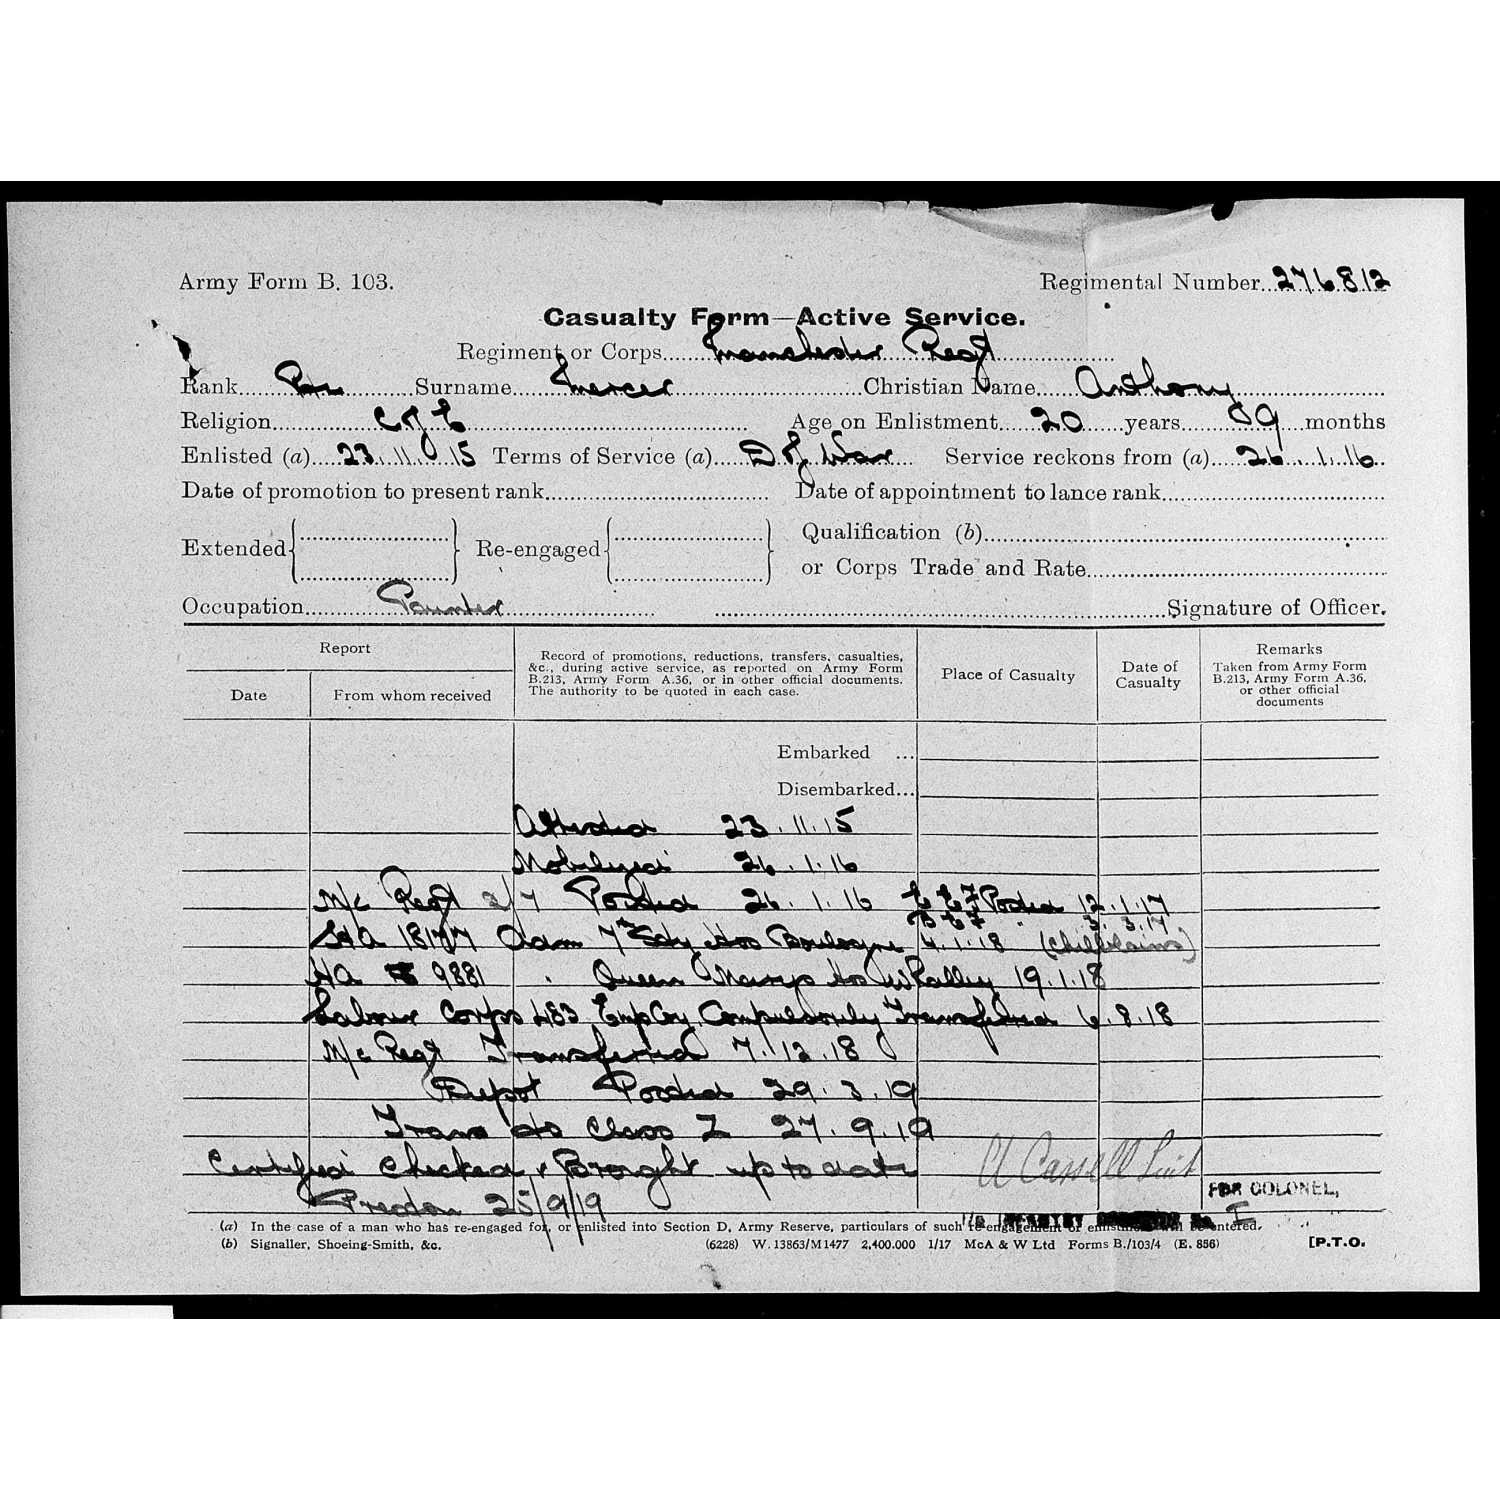 Army Form B. 103.
Regimental Number 276812
Casualty Form—Active Service.
Regiment or Corps Manchester Regt
Rank Pte Surname Mercer Christian Name Anthony
Religion C of E Age on Enlistment 20 years 09 months
Enlisted (a) 23.11.15 Terms of Service (a) D of War Service reckons from (a) 26.1.16
Date of promotion to present rank Date of appointment to lance rank
Extended Re-engaged Qualification (b)
or Corps Trade and Rate
Occupation Painter Signature of Officer.
Report
Date
From whom received
Record of promotions, reductions, transfers, casualties, &c., during active service, as reported on Army Form B.213, Army Form A.36, or in other official documents. The authority to be quoted in each case.
Place of Casualty
Date of Casualty
Remarks
Taken from Army Form B.213, Army Form A.36, or other official documents
Embarked ...
Disembarked...
Attested 23.11.15
Mobilised 26.1.16
M/c Regt 2/7 Posted 26.1.16 E E F Posted 12.1.17
B E F " 3.3.17
HA 18177 Adm 7th Sty Hos Boulogne 4.1.18 (Chilblains)
HA 9881 " Queen Marys Hos Whalley 19.1.18
Labour Corps 483 Emp Coy Compulsorily Transferred 6.8.18
M/c Regt Transferred 7.12.18
Depot Posted 29.3.19
Trans to Class Z 27.9.19
Certified Checked & Brought up to date
Preston 25/9/19
A Cassell Lieut
FOR COLONEL,
(a) In the case of a man who has re-engaged for, or enlisted into Section D, Army Reserve, particulars of such re-engagement or enlistment will be entered.
(b) Signaller, Shoeing-Smith, &c.
(6228) W. 13863/M1477 2,400.000 1/17 McA & W Ltd Forms B./103/4 (E. 856)
[P.T.O.